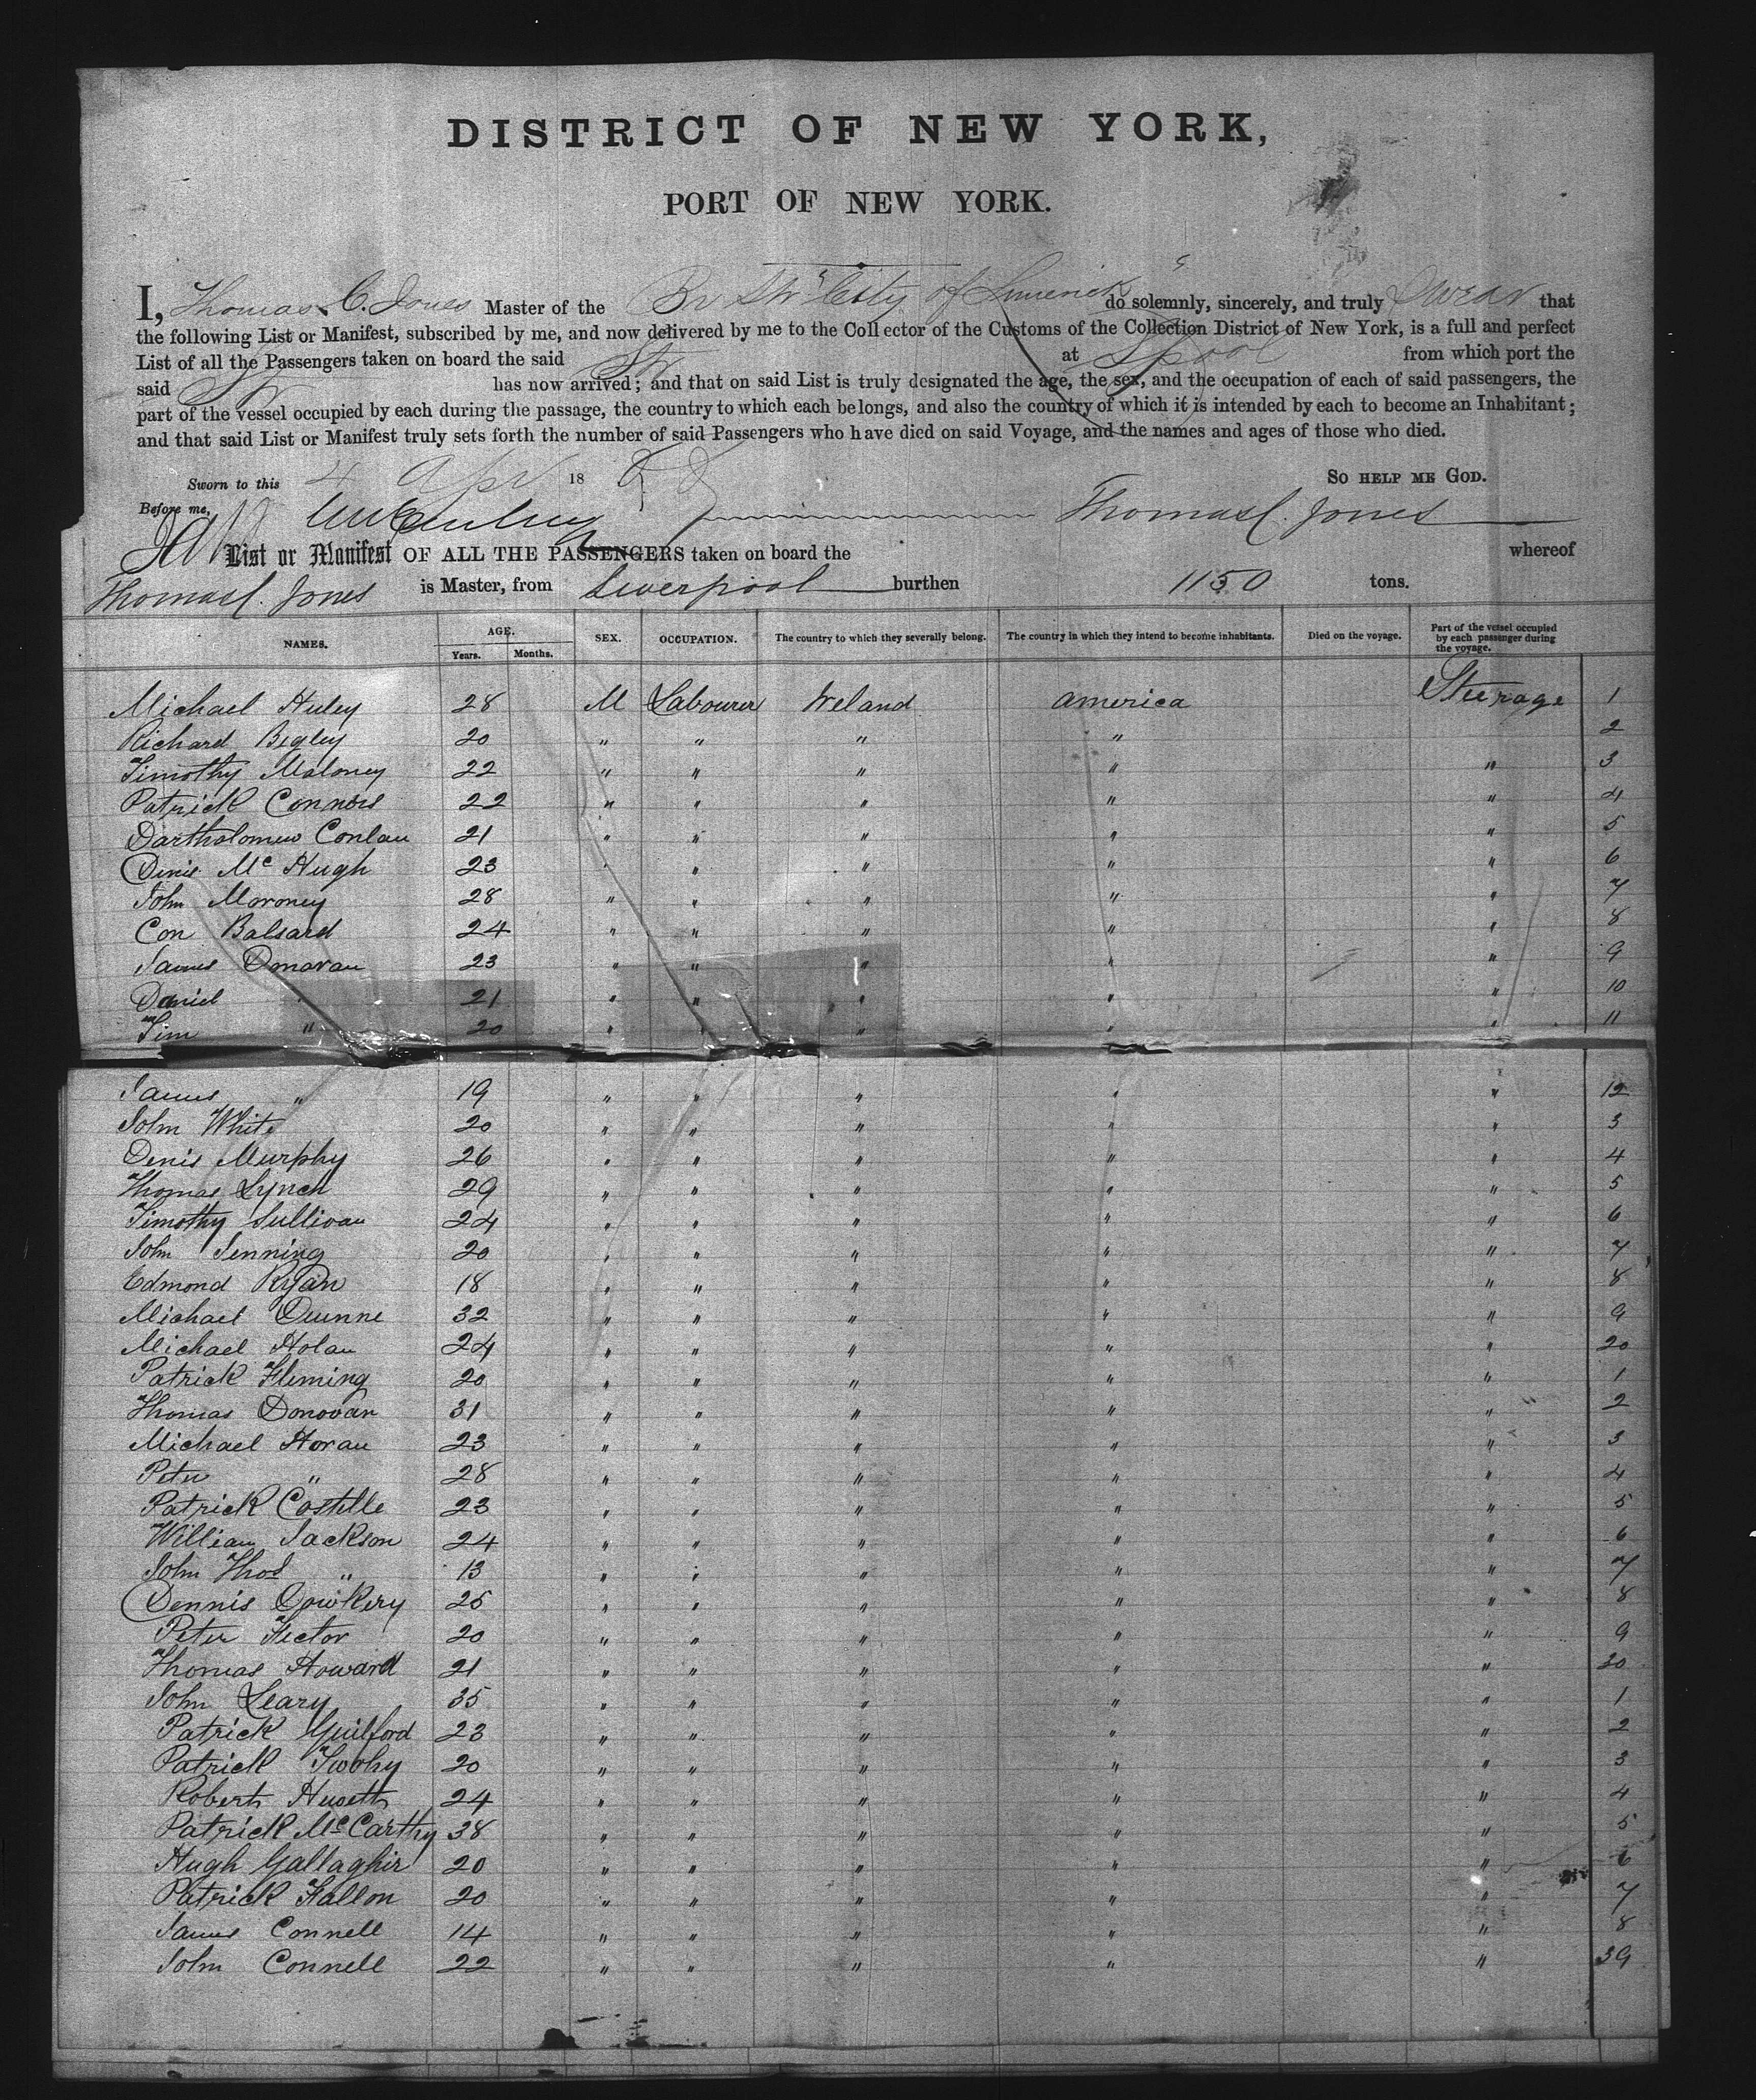 DISTRICT OF NEW YORK,
PORT OF NEW YORK.
I, Thomas C. Jones Master of the Br Str "City of Limerick" do solemnly, sincerely, and truly Swear that
the following List or Manifest, subscribed by me, and now delivered by me to the Collector of the Customs of the Collection District of New York, is a full and perfect
List of all the Passengers taken on board the said Str at Lpool from which port the
said Str has now arrived; and that on said List is truly designated the age, the sex, and the occupation of each of said passengers, the
part of the vessel occupied by each during the passage, the country to which each belongs, and also the country of which it is intended by each to become an Inhabitant;
and that said List or Manifest truly sets forth the number of said Passengers who have died on said Voyage, and the names and ages of those who died.
Sworn to this 4 Apr 18 So help me God.
Before me, Thomas C. Jones
List or Manifest OF ALL THE PASSENGERS taken on board the whereof
Thomas C. Jones is Master, from Liverpool burthen 1150 tons.
NAMES. AGE. Years. Months. SEX. OCCUPATION. The country to which they severally belong. The country in which they intend to become inhabitants. Died on the voyage. Part of the vessel occupied by each passenger during the voyage.
Michael Huley 28 M Labourer Ireland america Steerage 1
Richard Begley 20 " " " " 2
Timothy Maloney 22 " " " " " 3
Patrick Connors 22 " " " " " 4
Bartholomew Conlan 21 " " " " " 5
Denis Mc Hugh 23 " " " " " 6
John Moroney 28 " " " " " 7
Con Balsard 24 " " " " " 8
James Donavan 23 " " " " " 9
Daniel " 21 " " " " " 10
Tim " 20 " " " " " 11
James " 19 " " " " " 12
John White 20 " " " " " 3
Denis Murphy 26 " " " " " 4
Thomas Lynch 29 " " " " " 5
Timothy Sullivan 24 " " " " " 6
John Jenning 20 " " " " " 7
Edmond Ryan 18 " " " " " 8
Michael Quinne 32 " " " " " 9
Michael Holan 24 " " " " " 20
Patrick Fleming 20 " " " " " 1
Thomas Donovan 31 " " " " " 2
Michael Horan 23 " " " " " 3
Peter " 28 " " " " " 4
Patrick Costelle 23 " " " " " 5
William Jackson 24 " " " " " 6
John Thos " 13 " " " " " 7
Dennis Cowkery 25 " " " " " 8
Peter Hector 20 " " " " " 9
Thomas Howard 21 " " " " " 30
John Leary 35 " " " " " 1
Patrick Guilford 23 " " " " " 2
Patrick Twohy 20 " " " " " 3
Robert Husett 24 " " " " " 4
Patrick McCarthy 38 " " " " " 5
Hugh Gallaghir 20 " " " " " 6
Patrick Fallon 20 " " " " " 7
James Connell 14 " " " " " 8
John Connell 22 " " " " " 39